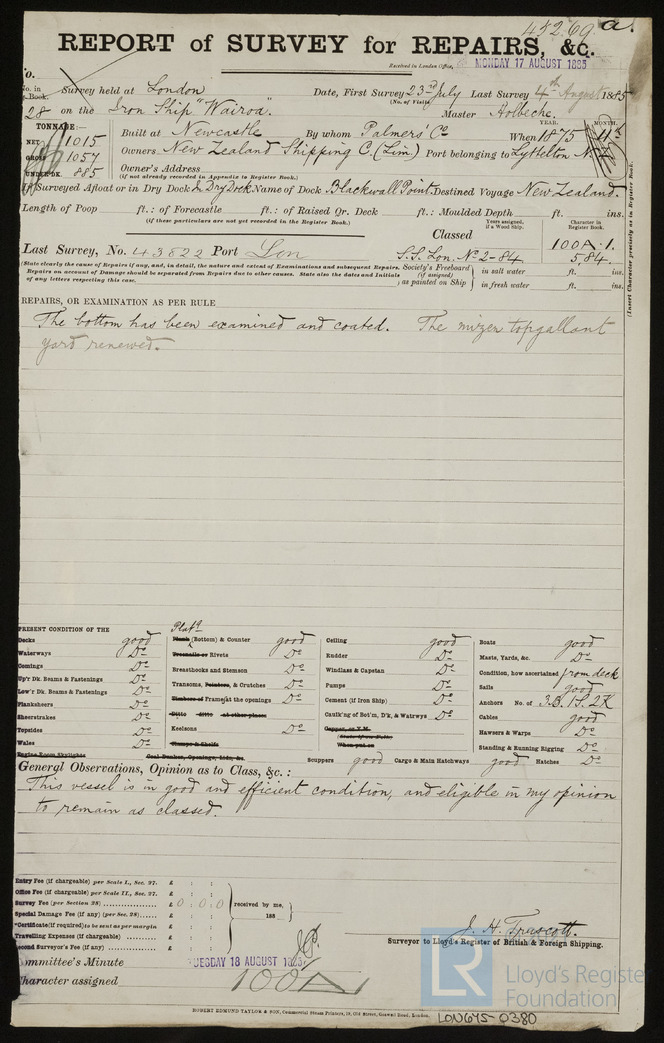 48269 a.
REPORT of SURVEY for REPAIRS, &c.
Received in London Office, MONDAY 17 AUGUST 1885
No. in Reg. Book. Survey held at London Date, First Survey 23rd July Last Survey 4th August 1885
(No. of Visits)
28 on the Iron Ship "Wairoa." Master Holbeche.
TONNAGE:— YEAR. MONTH.
NET 1015 Built at Newcastle By whom Palmers' Co When 1875
GROSS 1057 Owners New Zealand Shipping C. (Lim) Port belonging to Lyttelton N.Z.
UNDER DK. 885 Owner's Address
(If not already recorded in Appendix to Register Book.)
If Surveyed Afloat or in Dry Dock Dry Dock Name of Dock Blackwall Point Destined Voyage New Zealand.
Length of Poop ft.: of Forecastle ft.: of Raised Qr. Deck ft.: Moulded Depth ft. ins.
(If these particulars are not yet recorded in the Register Book.)
Classed
Years assigned, if a Wood Ship. Character in Register Book.
Last Survey, No. 43822 Port Lon S.S. Lon. No 2-84 100A.1. 5,84.
(State clearly the cause of Repairs if any, and, in detail, the nature and extent of Examinations and subsequent Repairs. Repairs on account of Damage should be separated from Repairs due to other causes. State also the dates and Initials of any letters respecting this case.
Society's Freeboard (if assigned) as painted on Ship in salt water ft. ins.
in fresh water ft. ins.
(Insert Character precisely as in Register Book.
REPAIRS, OR EXAMINATION AS PER RULE
The bottom has been examined and coated. The mizen topgallant
yard renewed.
PRESENT CONDITION OF THE
Decks good
Waterways Do
Comings Do
Up'r Dk. Beams & Fastenings Do
Low'r Dk. Beams & Fastenings Do
Planksheers Do
Sheerstrakes Do
Topsides Do
Wales Do
Engine Room Skylights
Plank (Bottom) & Counter good
Treenails or Rivets Do
Breasthooks and Stemson Do
Transoms, Pointers, & Crutches Do
Timbers of Frames at the openings Do
Ditto ditto at other places
Keelsons Do
Clamps & Shelfs
Coal Bunker, Openings, Lids, &c.
Ceiling good
Rudder Do
Windlass & Capstan Do
Pumps Do
Cement (if Iron Ship) Do
Caulk'ng of Bot'm, D'k, & Watrwys Do
Copper, or Y.M.
When put on
Scuppers good Cargo & Main Hatchways good Hatches Do
Boats good
Masts, Yards, &c. Do
Condition, how ascertained from deck
Sails good
Anchors No. of 3.B. 1S. 2K
Cables good
Hawsers & Warps Do
Standing & Running Rigging Do
General Observations, Opinion as to Class, &c.:
This vessel is in good and efficient condition, and eligible in my opinion
to remain as classed.
Entry Fee (if chargeable) per Scale I., Sec. 27. £ : :
Office Fee (if chargeable) per Scale II., Sec. 27. £ : :
Survey Fee (per Section 28) £ 0 : 0 : 0
Special Damage Fee (if any) (per Sec. 28) £ : :
*Certificate (if required) to be sent as per margin
Travelling Expenses (if chargeable) £ : :
Second Surveyor's Fee (if any) £ : :
received by me,
188
J. H. Truscott.
Surveyor to Lloyd's Register of British & Foreign Shipping.
Committee's Minute TUESDAY 18 AUGUST 1885
Character assigned 100A
ROBERT EDMUND TAYLOR & SON, Commercial Steam Printers, 19, Old Street, Goswell Road, London.
LR
Lloyd's Register
Foundation
LON675-0380